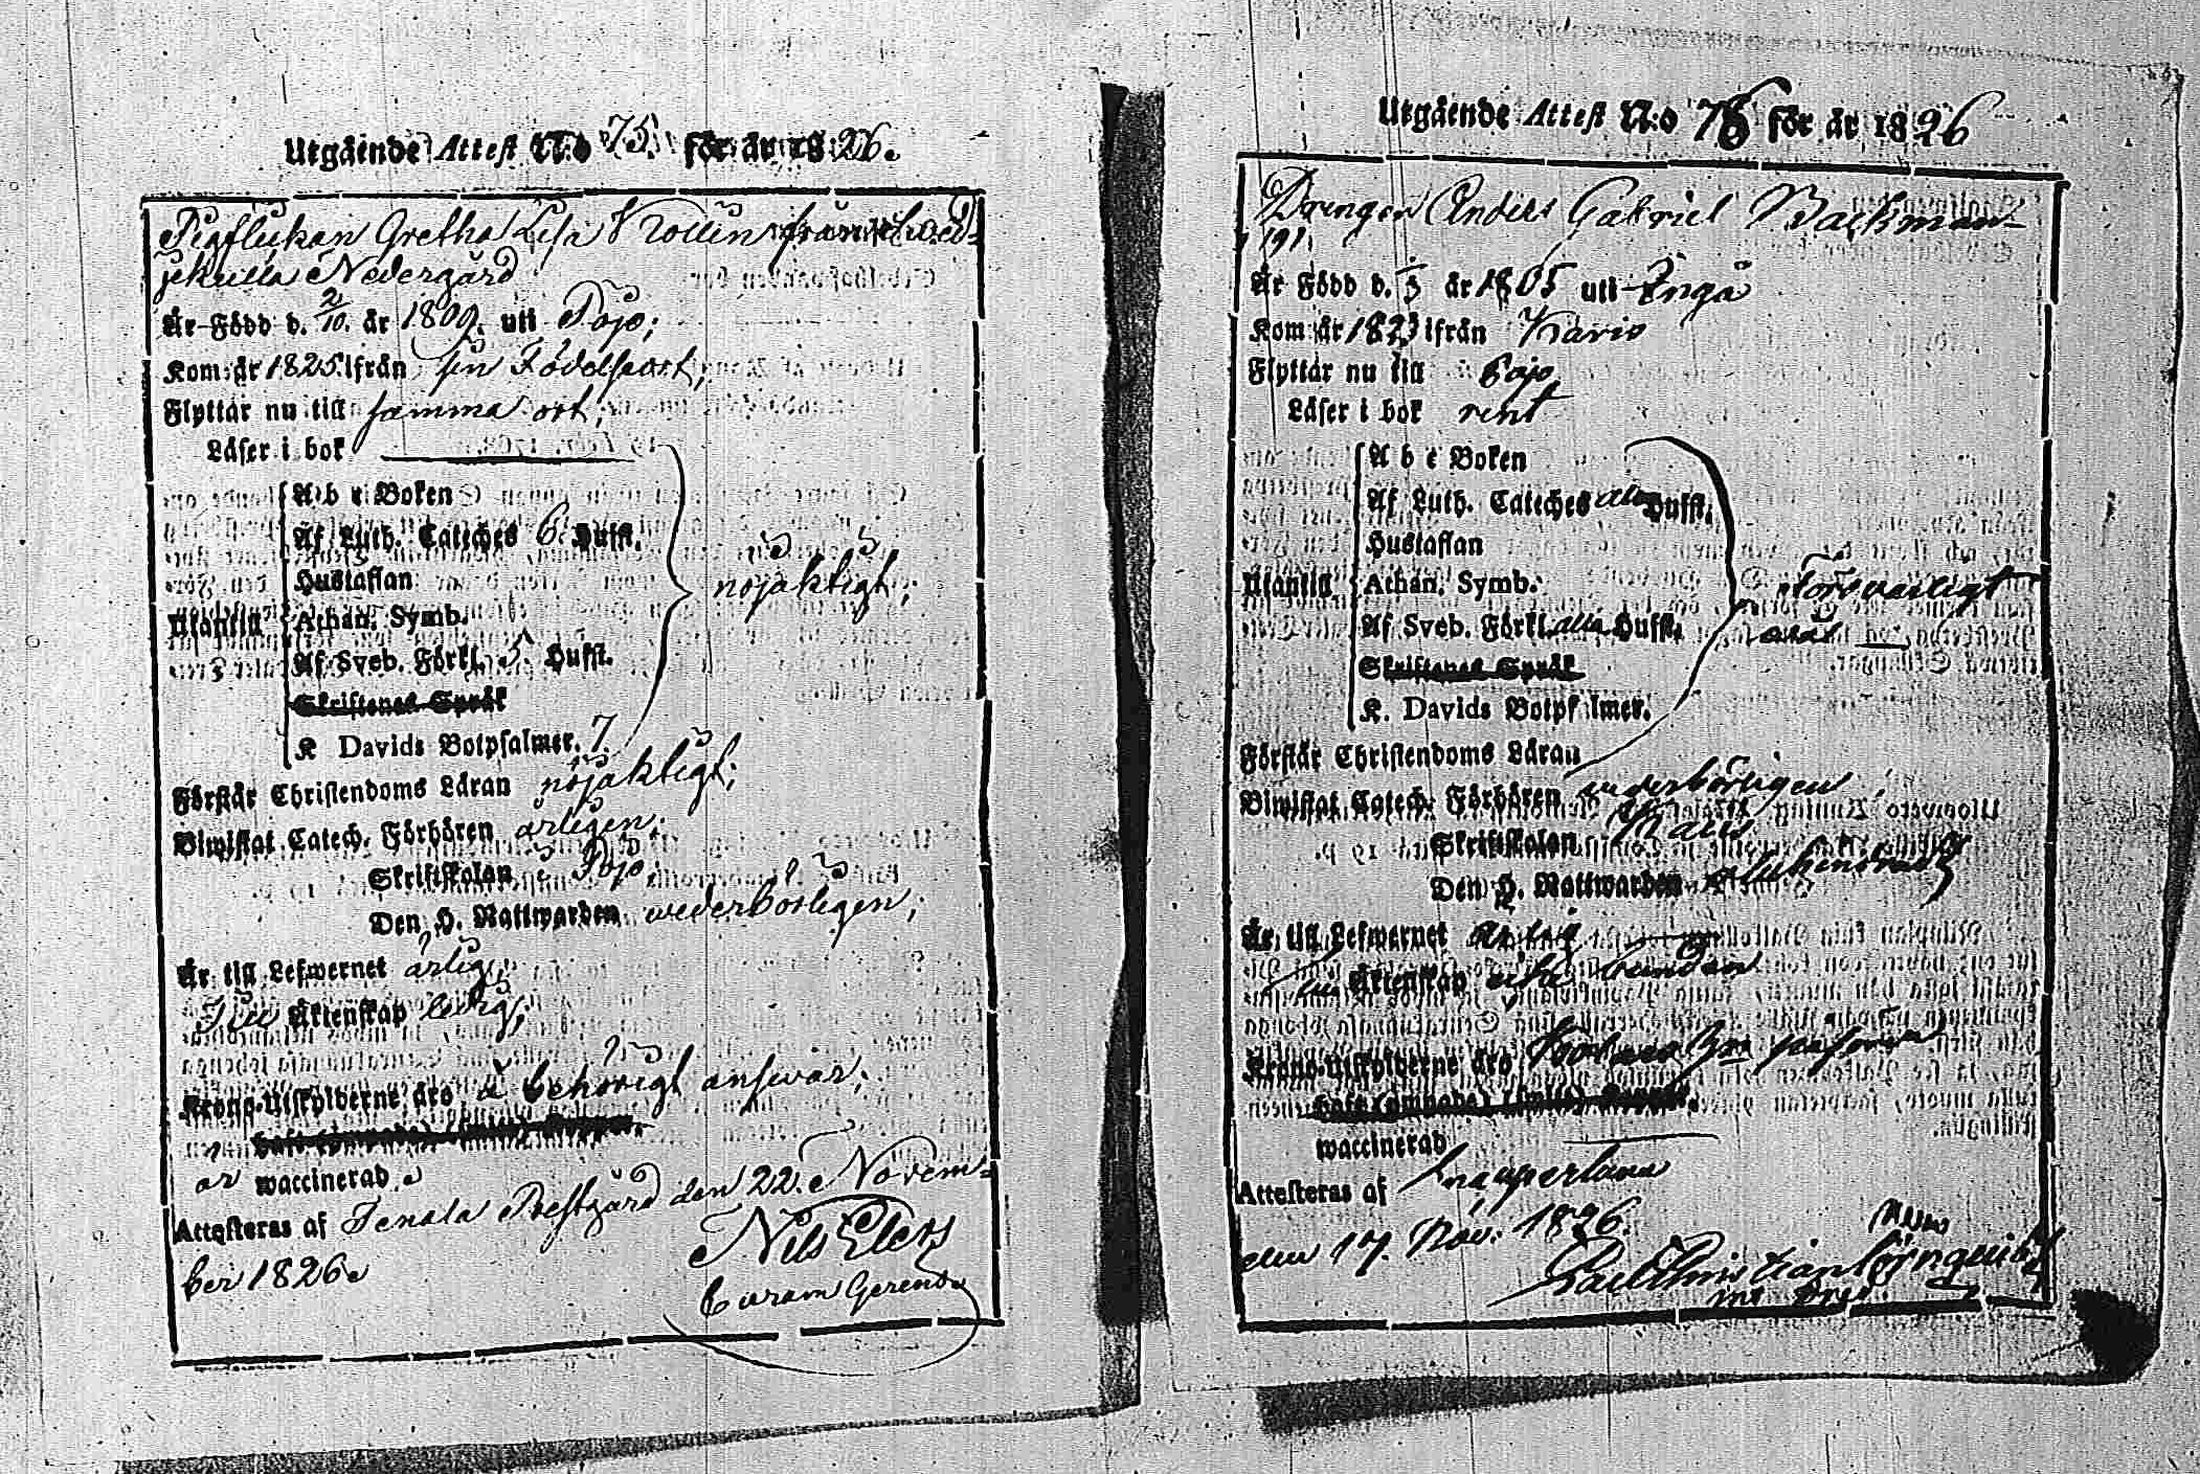 Utgående Attest N:o 75. för år 1826.
Pigflickan Gretha Lisa Kollin från
Nedergård
Är Född d. 2/10. år 1809. uti Pojo;
Kom år 1825. ifrån sin Födelseort,
Flyttar nu till samma ort;
Läser i bok
A b c Boken
Af Luth. Cateches 6. Hufst.
Hustaflan
nöjaktigt;
Athan. Symb.
Utantill
Af Sveb. Förkl. 5. Hufst.
Skriftenes Språk
K Davids Botpsalmer. 7
Förstår Christendoms Läran nöjaktigt;
Biwistat Catech. Förhören årligen;
Skriftskolan i Pojo;
Den H. Nattwarden wederbörligen;
Är till Lefwernet ärlig;
Till Äktenskap ledig;
Krono-Utskylderne äro å behörigt answar;
haft (ympade) (små) Koppor.
är waccinerad.
Attesteras af Tenala Prestgård den 22. Novem-
ber 1826.
Nils Elers
Curam Gerens
Utgående Attest N:o 76 för år 1826
Drengen Anders Gabriel Backman
191
Är Född d. år 1805 uti Ingå
Kom år 1823 ifrån Karis
Flyttar nu till Pojo
Läser i bok rent
A b c Boken
Af Luth. Cateches alla Hufst.
Hustaflan
Utantill
Athan. Symb.
försvarligt
Af Sveb. Förkl. alla Hufst.
Skriftenes Språk
K. Davids Botpsalmer.
Förstår Christendoms Läran
Biwistat Catech. Förhören wederbörligen
Skriftskolan Karis
Den H. Nattwarden
Är till Lefwernet ärlig
Till Äktenskap icke bunden
Krono-Utskylderne äro
haft (ympade) (små) Koppor.
waccinerad
Attesteras af Knapperlana
den 17. Nov. 1826.